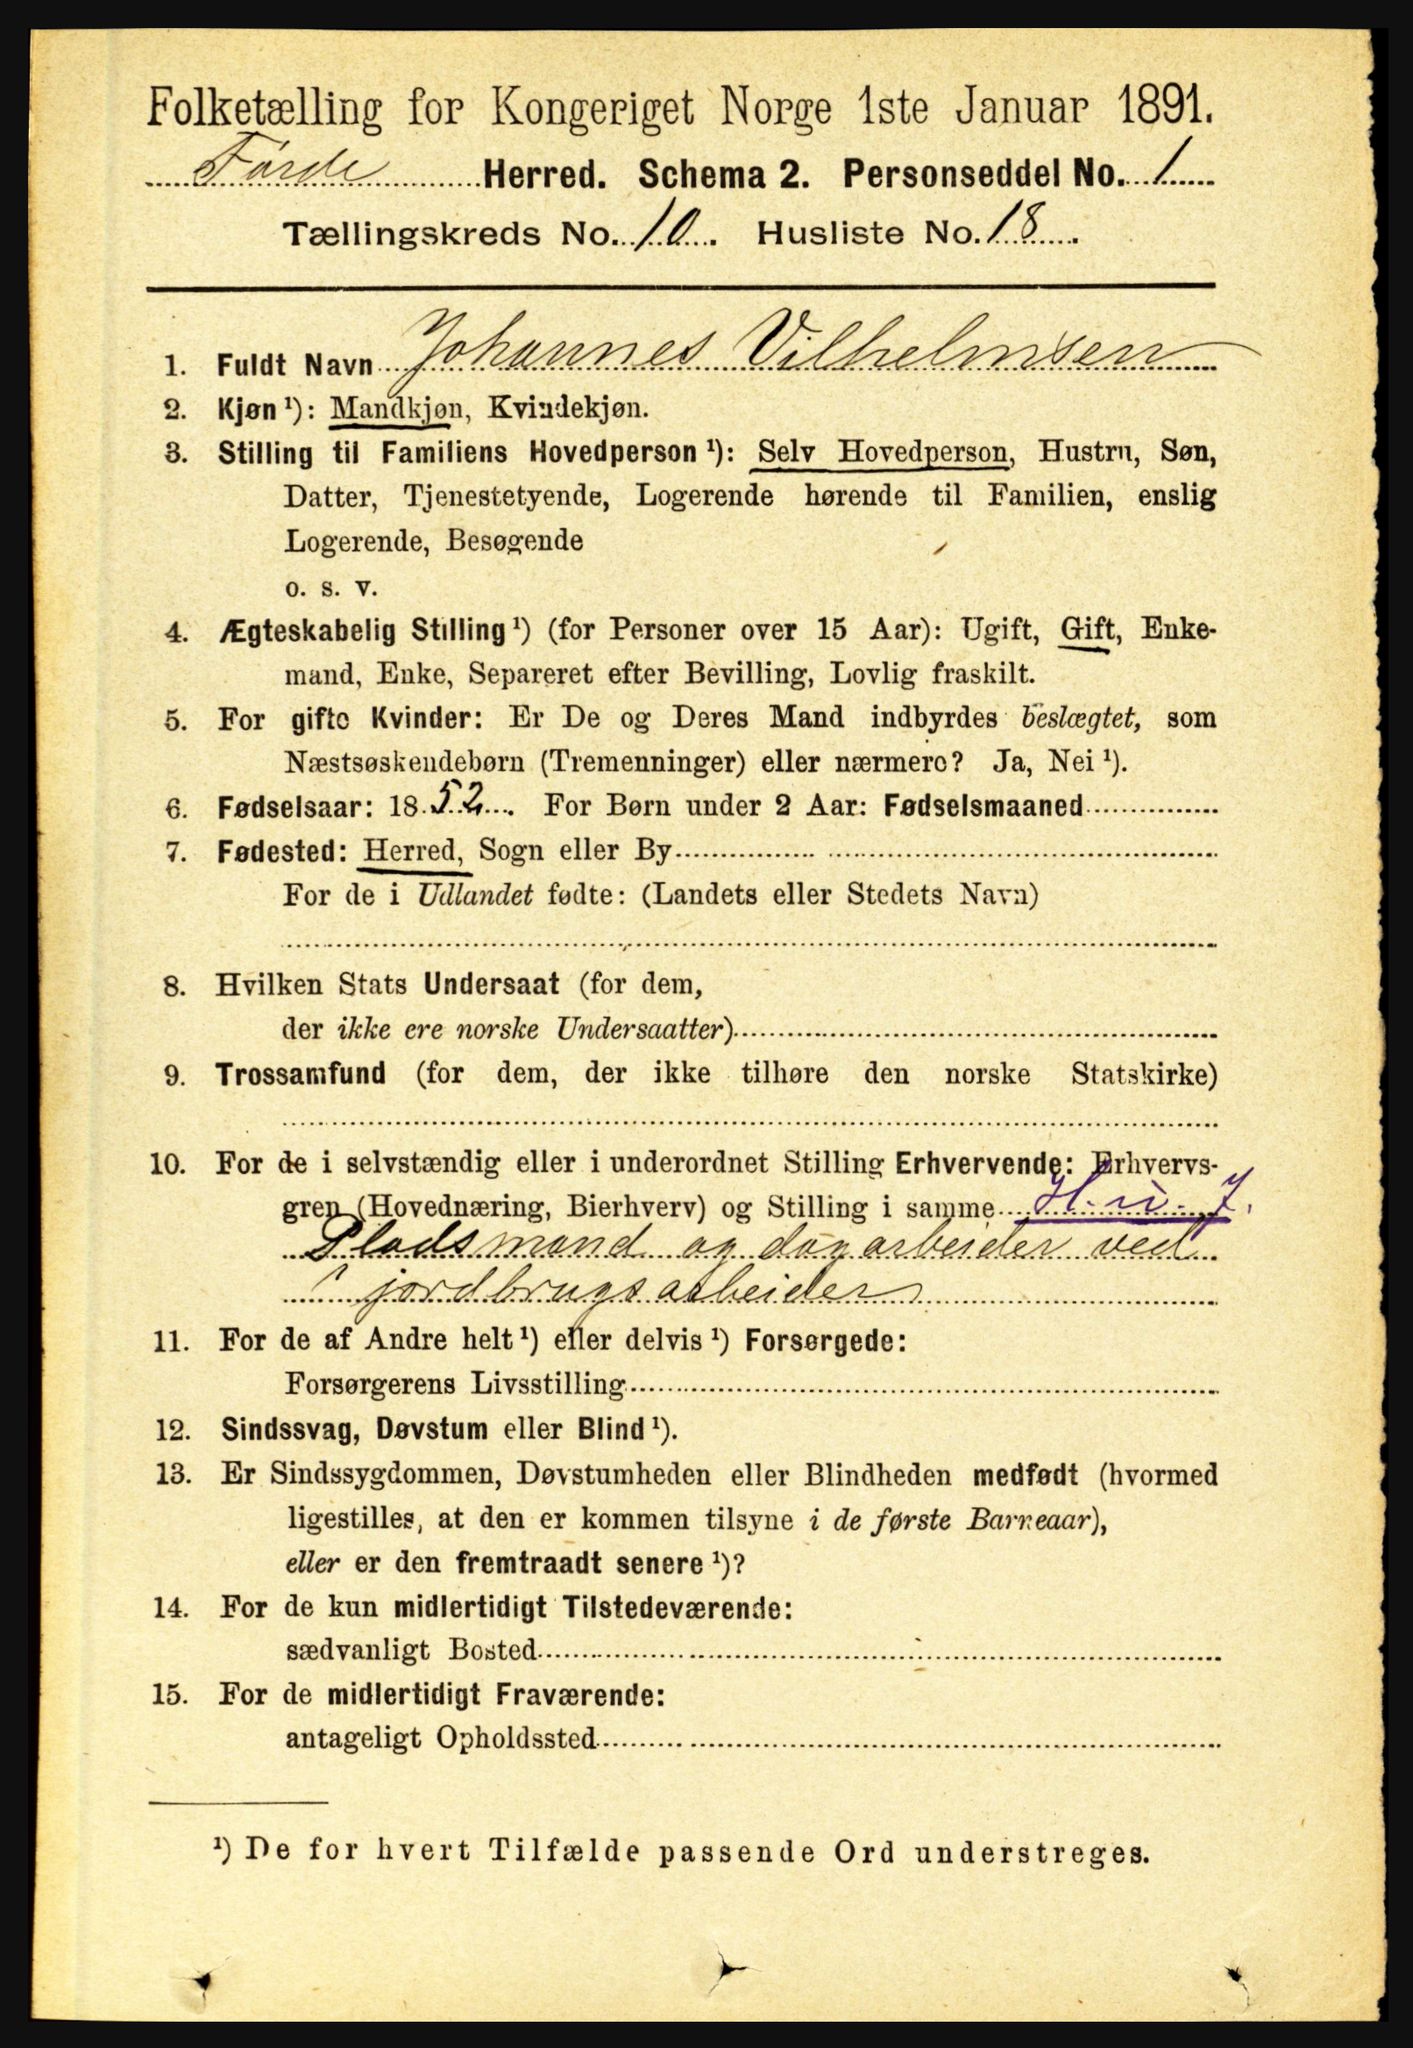 Folketælling for Kongeriget Norge 1ste Januar 1891.
Førde Herred. Schema 2. Personseddel No. 1
Tællingskreds No. 10. Husliste No. 18.
1. Fuldt Navn Johannes Vilhelmsen
2. Kjøn ¹): Mandkjøn, Kvindekjøn.
3. Stilling til Familiens Hovedperson ¹): Selv Hovedperson, Hustru, Søn,
Datter, Tjenestetyende, Logerende hørende til Familien, enslig
Logerende, Besøgende
o. s. v.
4. Ægteskabelig Stilling ¹) (for Personer over 15 Aar): Ugift, Gift, Enke-
mand, Enke, Separeret efter Bevilling, Lovlig fraskilt.
5. For gifte Kvinder: Er De og Deres Mand indbyrdes beslægtet, som
Næstsøskendebørn (Tremenninger) eller nærmere? Ja, Nei ¹).
6. Fødselsaar: 1852. For Børn under 2 Aar: Fødselsmaaned
7. Fødested: Herred, Sogn eller By
For de i Udlandet fødte: (Landets eller Stedets Navn)
8. Hvilken Stats Undersaat (for dem,
der ikke ere norske Undersaatter)
9. Trossamfund (for dem, der ikke tilhøre den norske Statskirke)
10. For de i selvstændig eller i underordnet Stilling Erhvervende: Erhvervs-
gren (Hovednæring, Bierhverv) og Stilling i samme
Pladsmand og dagarbeider ved
jordbrugsarbeider
11. For de af Andre helt ¹) eller delvis ¹) Forsørgede:
Forsørgerens Livsstilling
12. Sindssvag, Døvstum eller Blind ¹).
13. Er Sindssygdommen, Døvstumheden eller Blindheden medfødt (hvormed
ligestilles, at den er kommen tilsyne i de første Barneaar),
eller er den fremtraadt senere ¹)?
14. For de kun midlertidigt Tilstedeværende:
sædvanligt Bosted
15. For de midlertidigt Fraværende:
antageligt Opholdssted
¹) De for hvert Tilfælde passende Ord understreges.